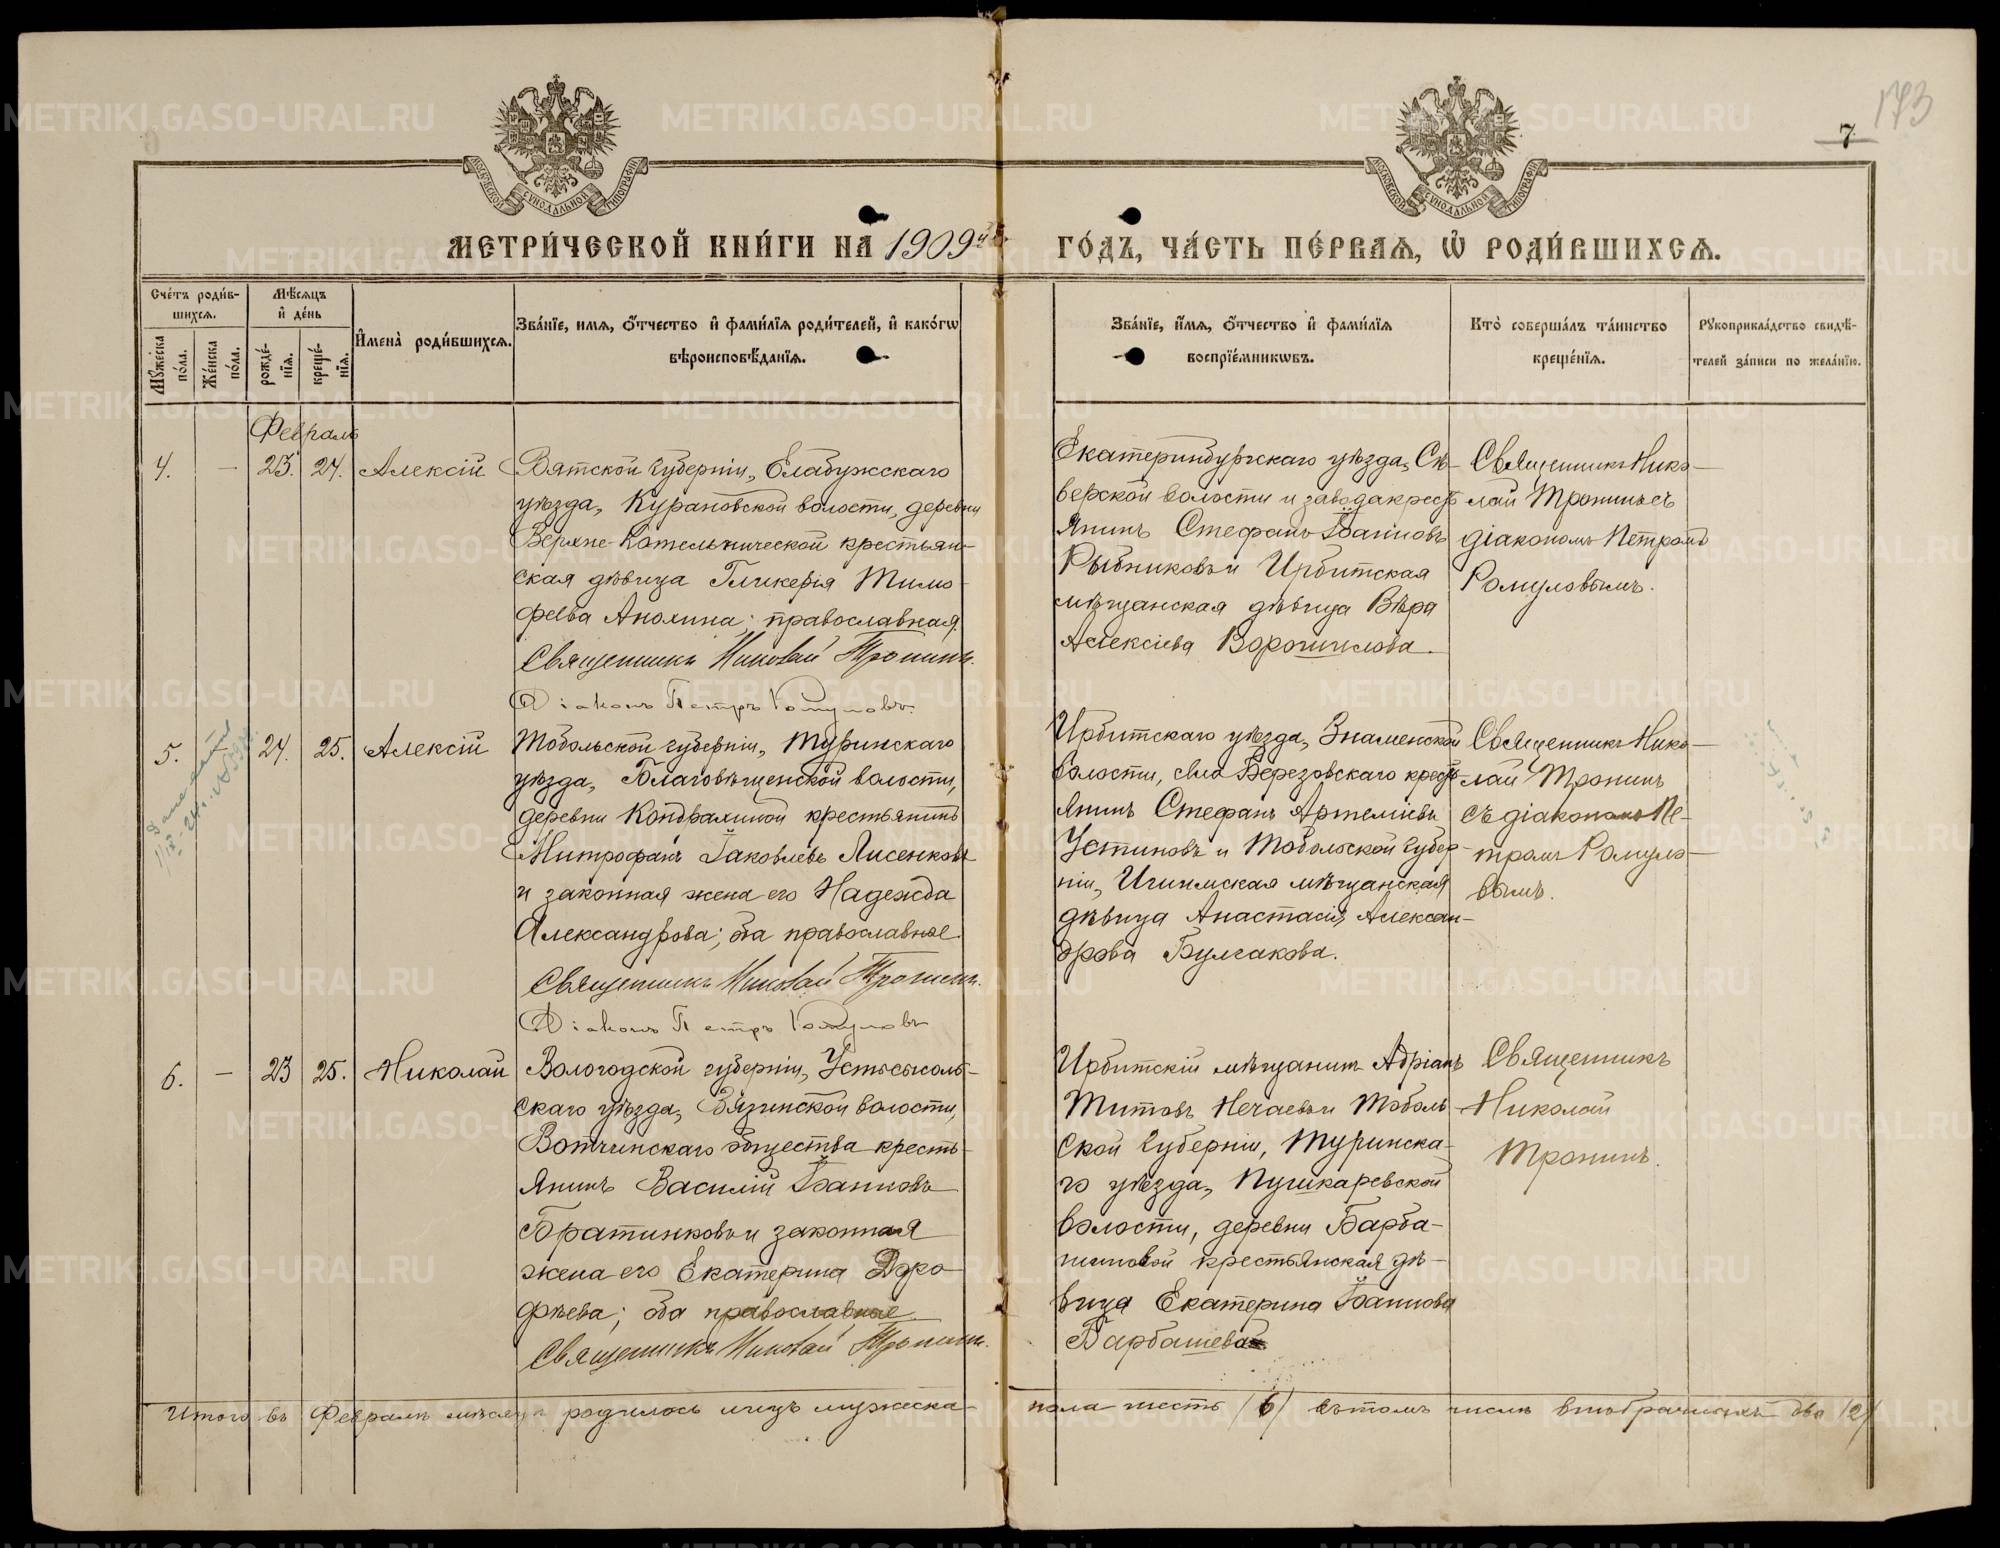 173
7.
МОСКОВСКОЙ СѴНОДАЛЬНОЙ ТИПОГРАФІИ
МОСКОВСКОЙ СѴНОДАЛЬНОЙ ТИПОГРАФІИ
МЕТРИ́ЧЕСКОЙ КНИ́ГИ НА 1909й
ГО́ДЪ, ЧА́СТЬ ПЕ́РВАѦ, Ѡ҆ РОДИ́ВШИХСѦ.
Сче́тъ роди́в-
шихсѧ.
Мꙋ́жеска по́ла.
Же́нска по́ла.
Мѣ́сѧцъ
и҆ де́нь
рожде́-нїѧ.
креще́-нїѧ.
И҆мена̀ роди́вшихсѧ.
Зва́нїе, имѧ, ѻ҆́тчество и҆ фами́лїѧ роди́телей, и҆ како́гѡ
вѣроисповѣ́данїѧ.
Зва́нїе, и҆́мѧ, ѻ҆́тчество и҆ фами́лїѧ
воспрїе́мникѡвъ.
Кто̀ соверша́лъ та́инство
креще́нїѧ.
Рꙋкоприкла́дство свидѣ́-
телей за́писи по жела́нїю.
Февраль
4. — 23. 24. Алексій
Вятской губерніи, Елабужскаго
уѣзда, Курановской волости, деревни
Верхне-Котельнической крестьян-
ская дѣвица Гликерія Тимо-
феева Анохина; православная.
Священникъ Николай Тронинъ.
Діаконъ Петръ Ромуловъ.
Екатеринбургскаго уѣзда, Сѣ-
верской волости и завода крест
янинъ Стефанъ Іоанновъ
Рыбниковъ и Ирбитская
мѣщанская дѣвица Вѣра
Алексіева Ворошилова.
Священникъ Нико-
лай Тронинъ съ
діакономъ Петромъ
Ромуловымъ.
5. — 24. 25. Алексій
Тобольской губерніи, Туринскаго
уѣзда, Благовѣщенской волости,
деревни Кондрахиной крестьянинъ
Митрофанъ Іаковлевъ Лисенковъ
и законная жена его Надежда
Александрова; оба православные.
Священникъ Николай Тронинъ.
Діаконъ Петръ Ромуловъ
Ирбитскаго уѣзда, Знаменской
волости, села Березовскаго кресть
янинъ Стефанъ Артеміевъ
Устиновъ и Тобольской губер-
ніи, Ишимская мѣщанская
дѣвица Анастасія Алексан-
дрова Булгакова.
Священникъ Нико-
лай Тронинъ
съ діакономъ Пе-
тромъ Ромуло-
вымъ.
6. — 23 25. Николай
Вологодской губерніи, Устьсысоль-
скаго уѣзда, Визингской волости,
Вотчинскаго общества кресть-
янинъ Василій Іоанновъ
Братинковъ и законная
жена его Екатерина Доро-
фѣева; оба православные.
Священникъ Николай Тронинъ.
Ирбитскій мѣщанинъ Адріанъ
Титовъ Нечаевъ и Тоболь-
ской губерніи, Туринска-
го уѣзда, Пушкаревской
волости, деревни Барба-
шиновой крестьянская дѣ-
вица Екатерина Іоаннова
Барбашева
Священникъ
Николай
Тронинъ.
Итого въ Февралѣ мѣсяцѣ родилось лицъ мужеска-
пола шесть /6/ въ томъ числѣ внѣбрачныхъ два /2/